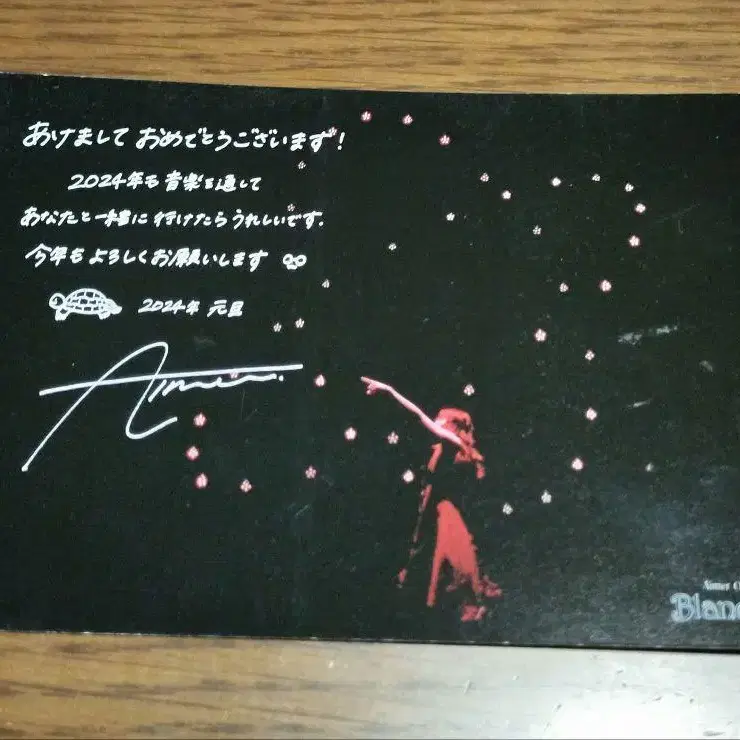 あけまして おめでとうございます!
2024年も 音楽を通して
あなたと一緒に 行けたらうれしいです.
今年も よろしくお願いします
2024年 元旦
Aimer.
Aimer
Blanc